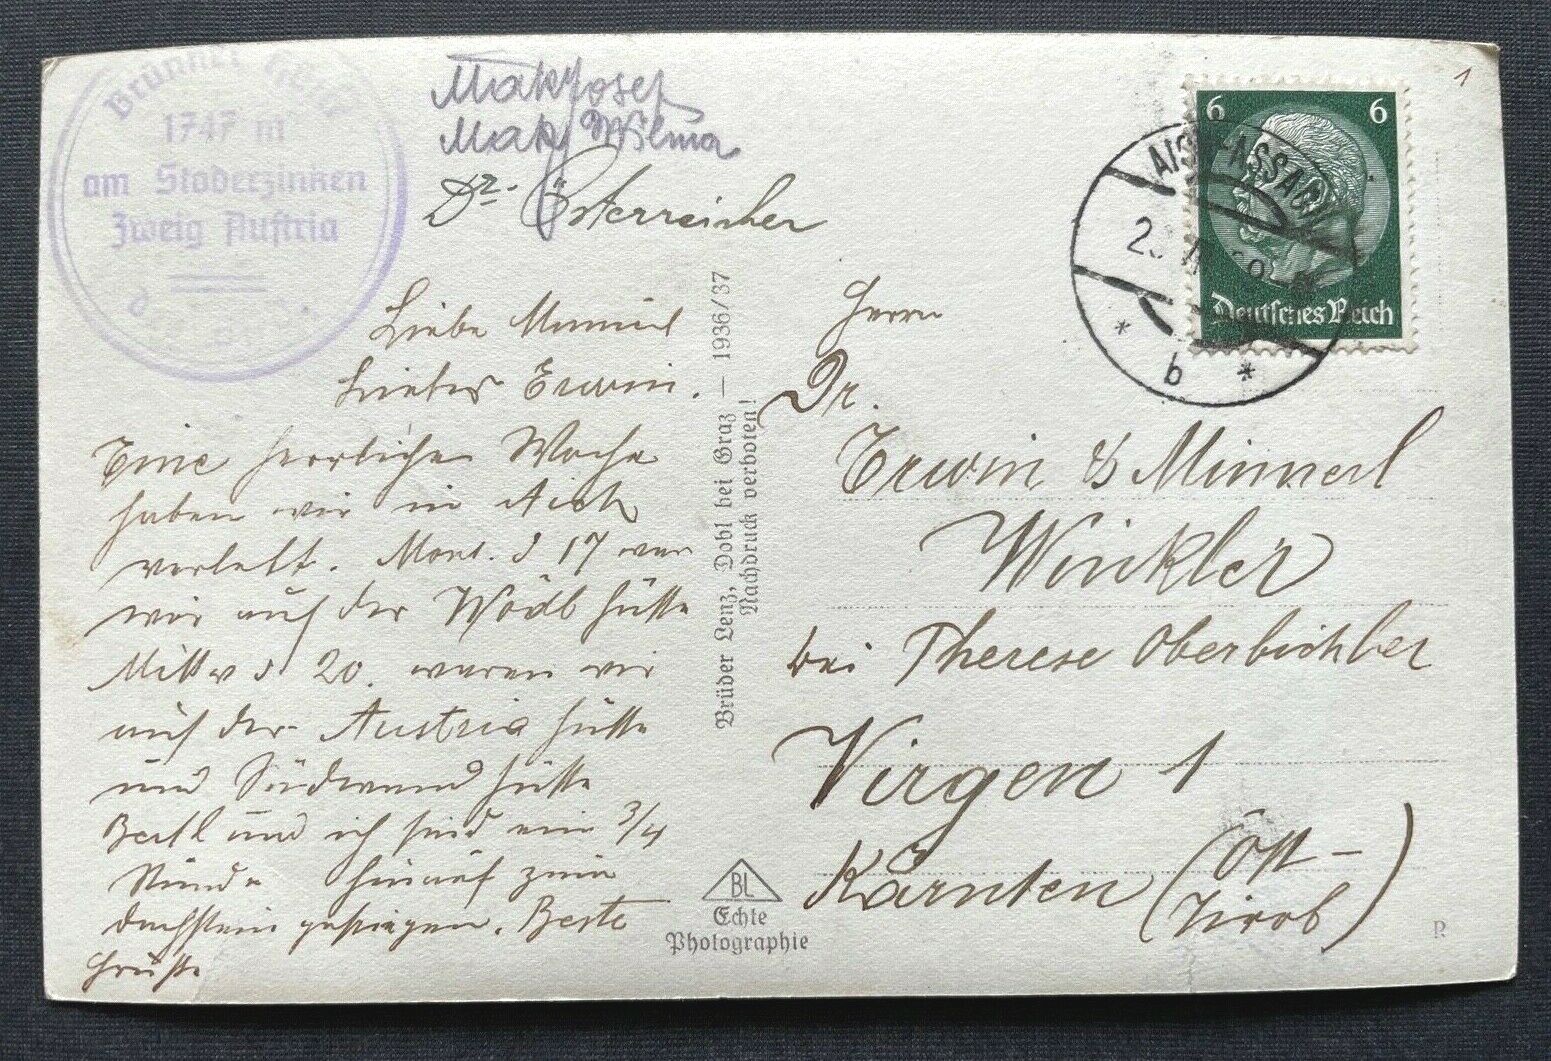 Brünner Hütte
1747 m
am Stoderzinken
Zweig Austria
Mak Josef
Mak Wilma
Dr. Österreicher
Liebe Minnerl
Lieber Erwin.
Eine herrliche Woche
haben wir in Aich
verlebt. Mont. d 17 war
wir auf der Wödl hütte
Mittw d 20. waren wir
auf der Austria hütte
und Südwand hütte
Bertl und ich sind ein 3/4
Stunde hinauf zum
Dachstein gestiegen. Beste
Grüße
Brüder Lenz, Dobl bei Graz — 1936/37
Nachdruck verboten!
BL
Echte
Photographie
6 6
Deutsches Reich
b
1
Herrn
Dr.
Erwin & Minnerl
Winkler
bei Therese Oberbichler
Virgen 1
Kärnten (Ost-
Tirol)
R